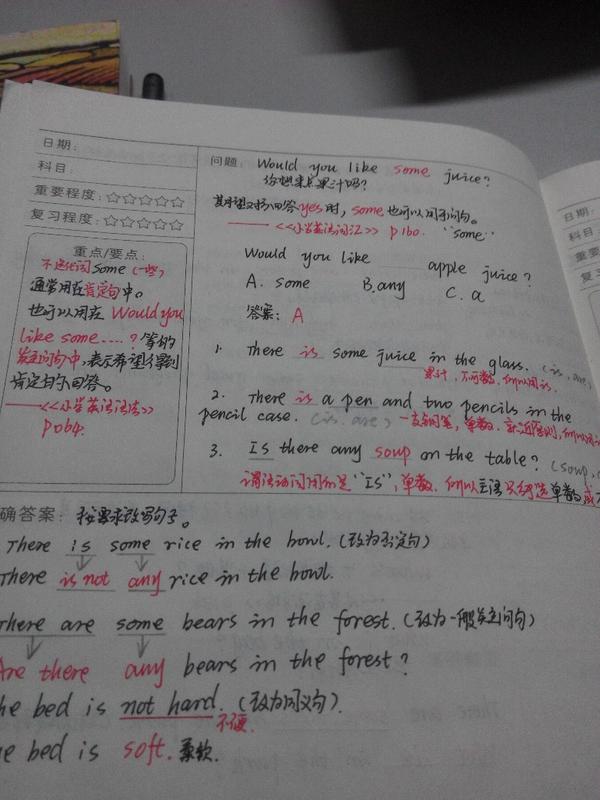 日期:
科目:
重要程度: ☆☆☆☆☆
复习程度: ☆☆☆☆☆
重点/要点:
不定代词some(一些)
通常用在肯定句中。
也可以用在Would you
like some....?等的
疑问句中,表示希望得到
肯定的回答。
——<<小学英语语法>>
P064.
问题 Would you like some juice?
你想来点果汁吗?
其希望对方回答yes时, some也可以用于问句。
——<<小学英语词汇>> P160. "some"
Would you like ____ apple juice?
A. some B. any C. a
答案: A
1. There is some juice in the glass. (is, are)
果汁,不可数,所以用is.
2. There is a pen and two pencils in the
pencil case. (is. are) 一支钢笔,单数.就近原则,所以用
3. Is there any soup on the table? (soup,
谓语动词用的是"Is",单数.所以主语只能选单数
确答案: 按要求改写句子。
There is some rice in the bowl. (改为否定句)
There is not any rice in the bowl.
There are some bears in the forest. (改为一般疑问句)
Are there any bears in the forest?
he bed is not hard. (改为同义句).
不硬.
he bed is soft. 柔软.
日期:
科目